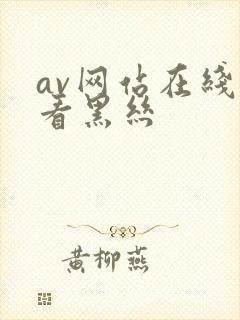 av网站在线
看黑丝
黄柳燕